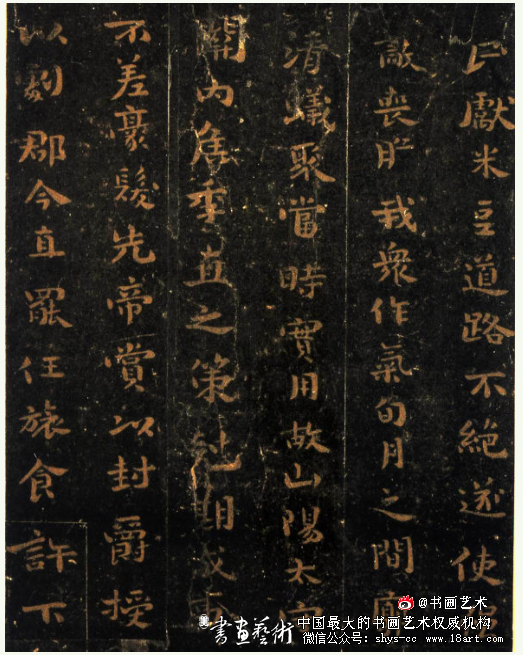 獻米豆道路不絕遂使
敵喪胆我衆作氣旬月之間廓
清蟻聚當時實用故山陽太守
關内侯季直之策尅期成事
不差豪髮先帝賞以封爵授
以劇郡今直罷任旅食許下
書畫藝術
@书画艺术
中国最大的书画艺术权威机构
微信公众号:shys-cc www.18art.com